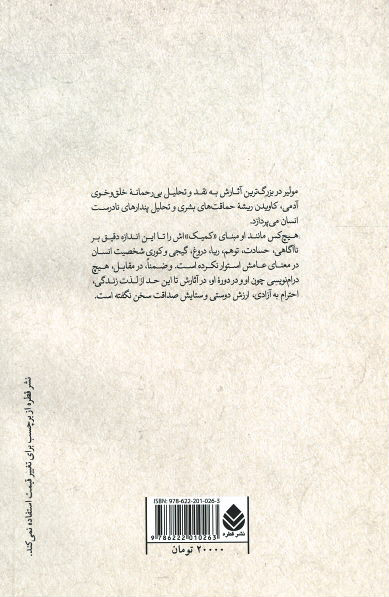 مولیر در بزرگ‌ترین آثارش به نقد و تحلیل بی‌رحمانهٔ خلق‌وخوی
آدمی، کاویدن ریشهٔ حماقت‌های بشری و تحلیل پندارهای نادرست
انسان می‌پردازد.
هیچ‌کس مانند او مبنای «کمیک»اش را تا این اندازه دقیق بر
ناآگاهی، حسادت، توهم، ریا، دروغ، گیجی و کوری شخصیت انسان
در معنای عامش استوار نکرده است. و ضمناً، در مقابل، هیچ
درام‌نویسی چون او و در دورهٔ او، در آثارش تا این حد از لذت زندگی،
احترام به آزادی، ارزش دوستی و ستایش صداقت سخن نگفته است.
نشر قطره از برچسب برای تغییر قیمت استفاده نمی‌کند.
ISBN: 978-622-201-026-3
9 786222 010263
نشر قطره
۲۰۰۰۰ تومان